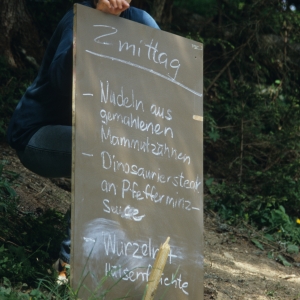 Zmittag
- Nudeln aus
gemahlenen
Mammutzähnen
- Dinosauriersteak
an Pfefferminz-
Sauce
- Wurzeln +
Hülsenfrüchte